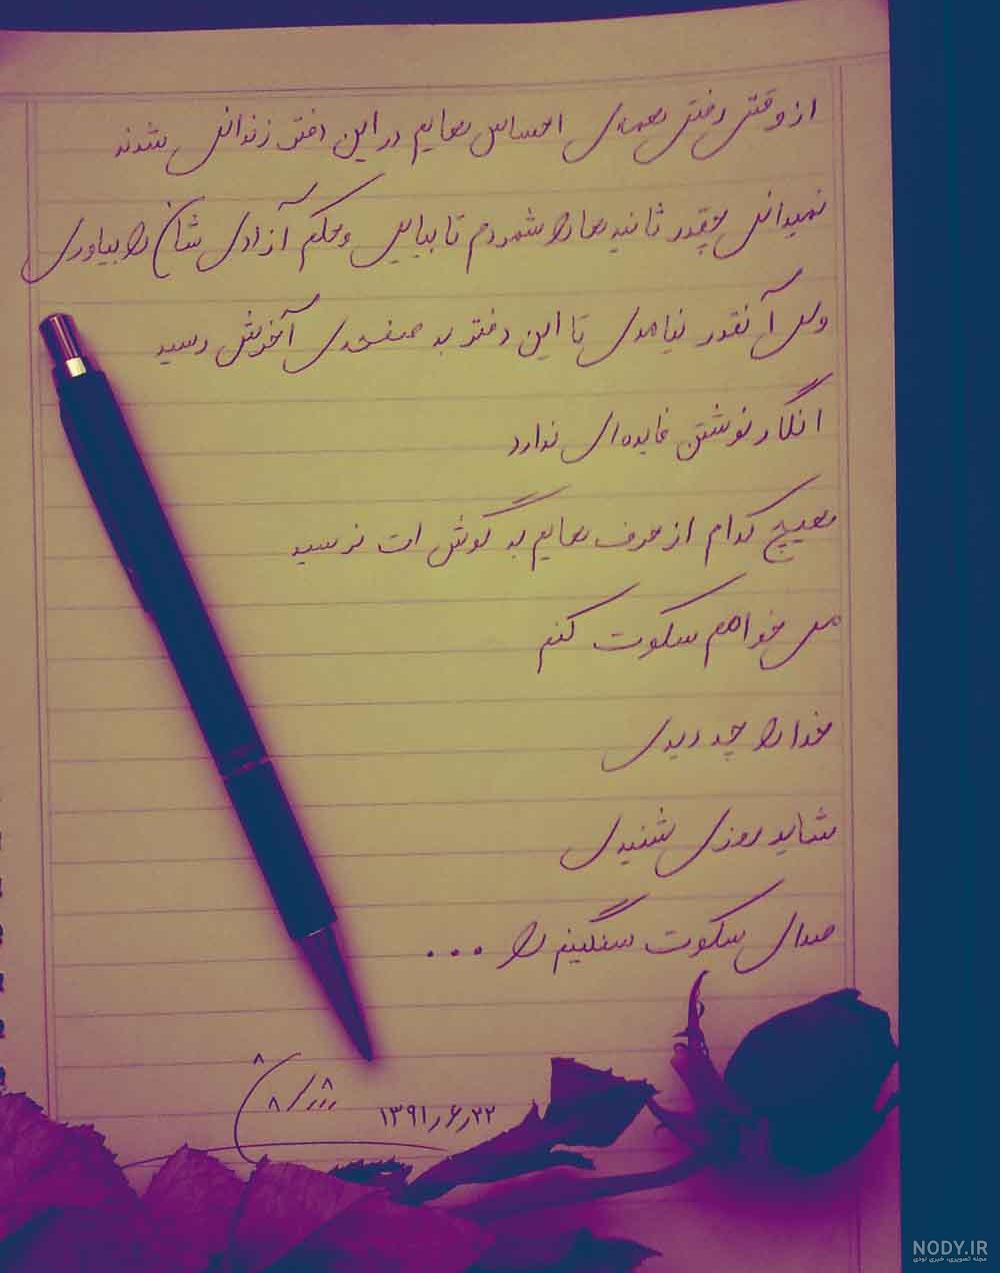 از وقتی رفتی همه‌ی احساس هایم در این دفتر زندانی شدند
نمیدانی چقدر ثانیه ها را شمردم تا بیایی و حکم آزادی شان را بیاوری
ولی آنقدر نیامدی تا این دفتر به صفحه‌ی آخرش رسید
انگار نوشتن فایده ای ندارد
هیچ کدام از حرف هایم به گوش ات نرسید
می خواهم سکوت کنم
خدا را چه دیدی
شاید روزی شنیدی
صدای سکوت سنگینم را ...
۱۳۹۱٫۶٫۲۲
NODY.IR
مجله تصویری، خبری نودی